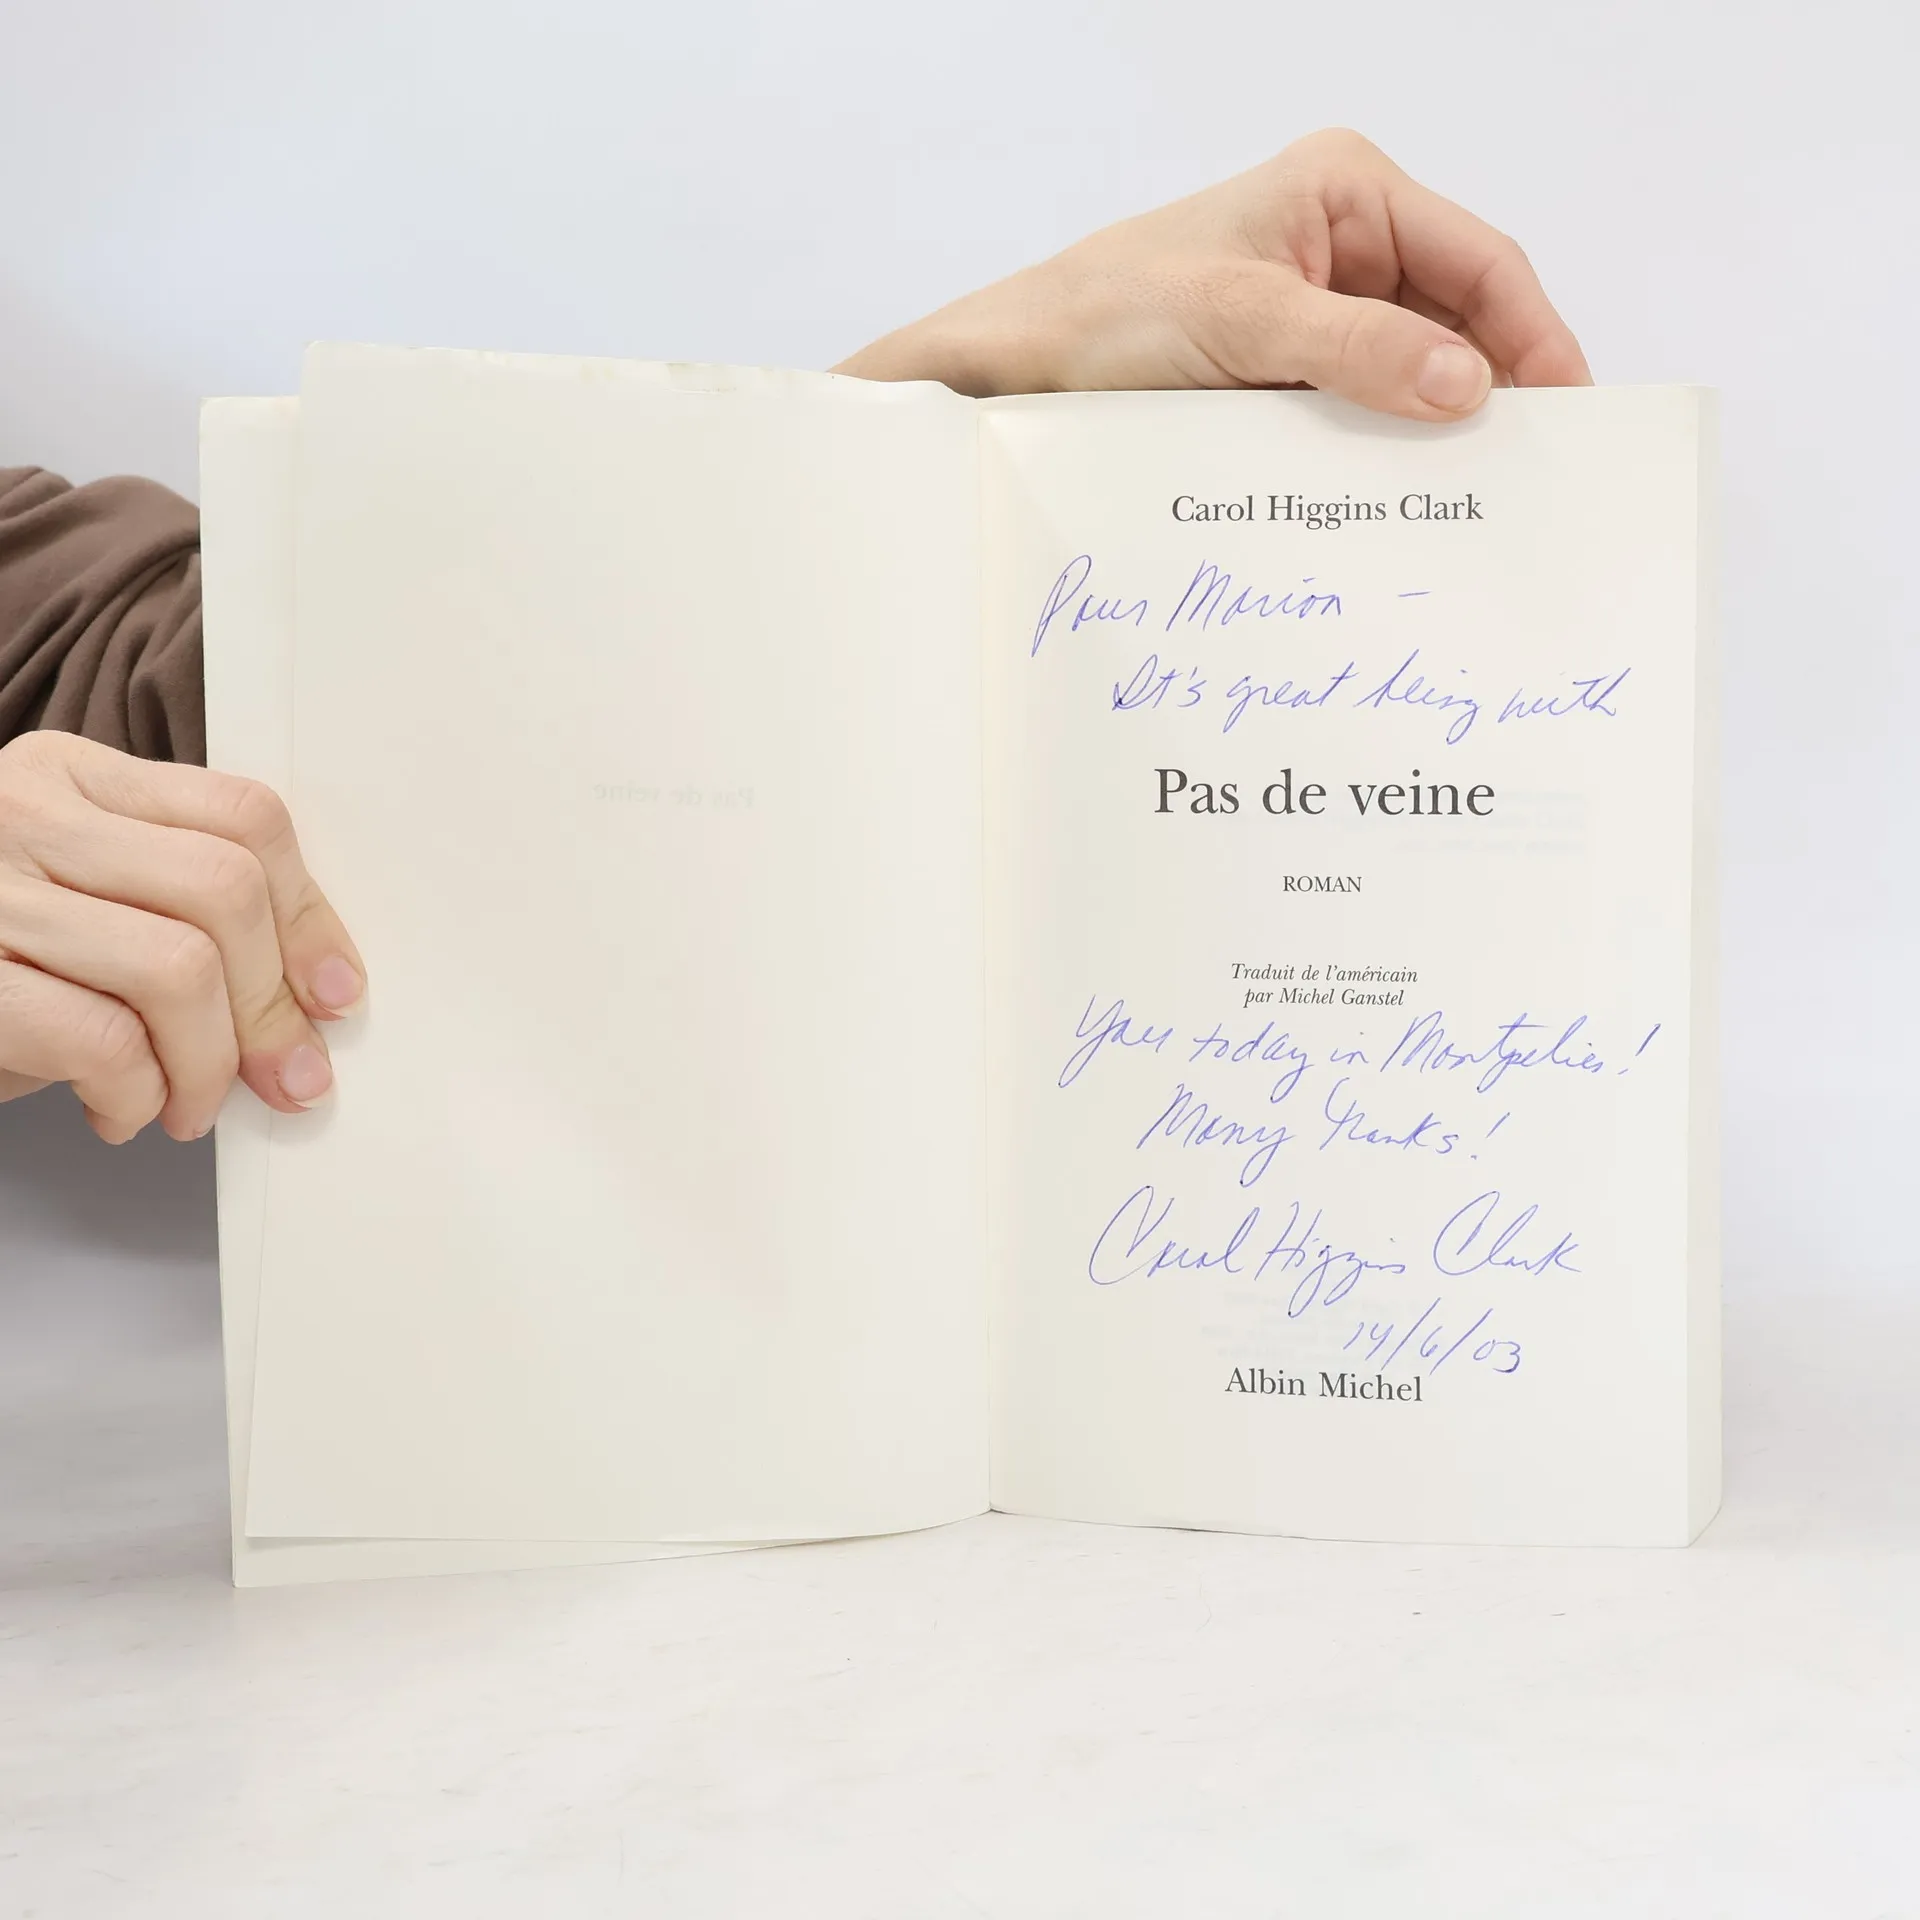 Carol Higgins Clark
Pour Marion —
It's great being with
Pas de veine
ROMAN
Traduit de l'américain
par Michel Ganstel
You today in Montpelier!
Many Thanks!
Carol Higgins Clark
14/6/03
Albin Michel
Pas de veine